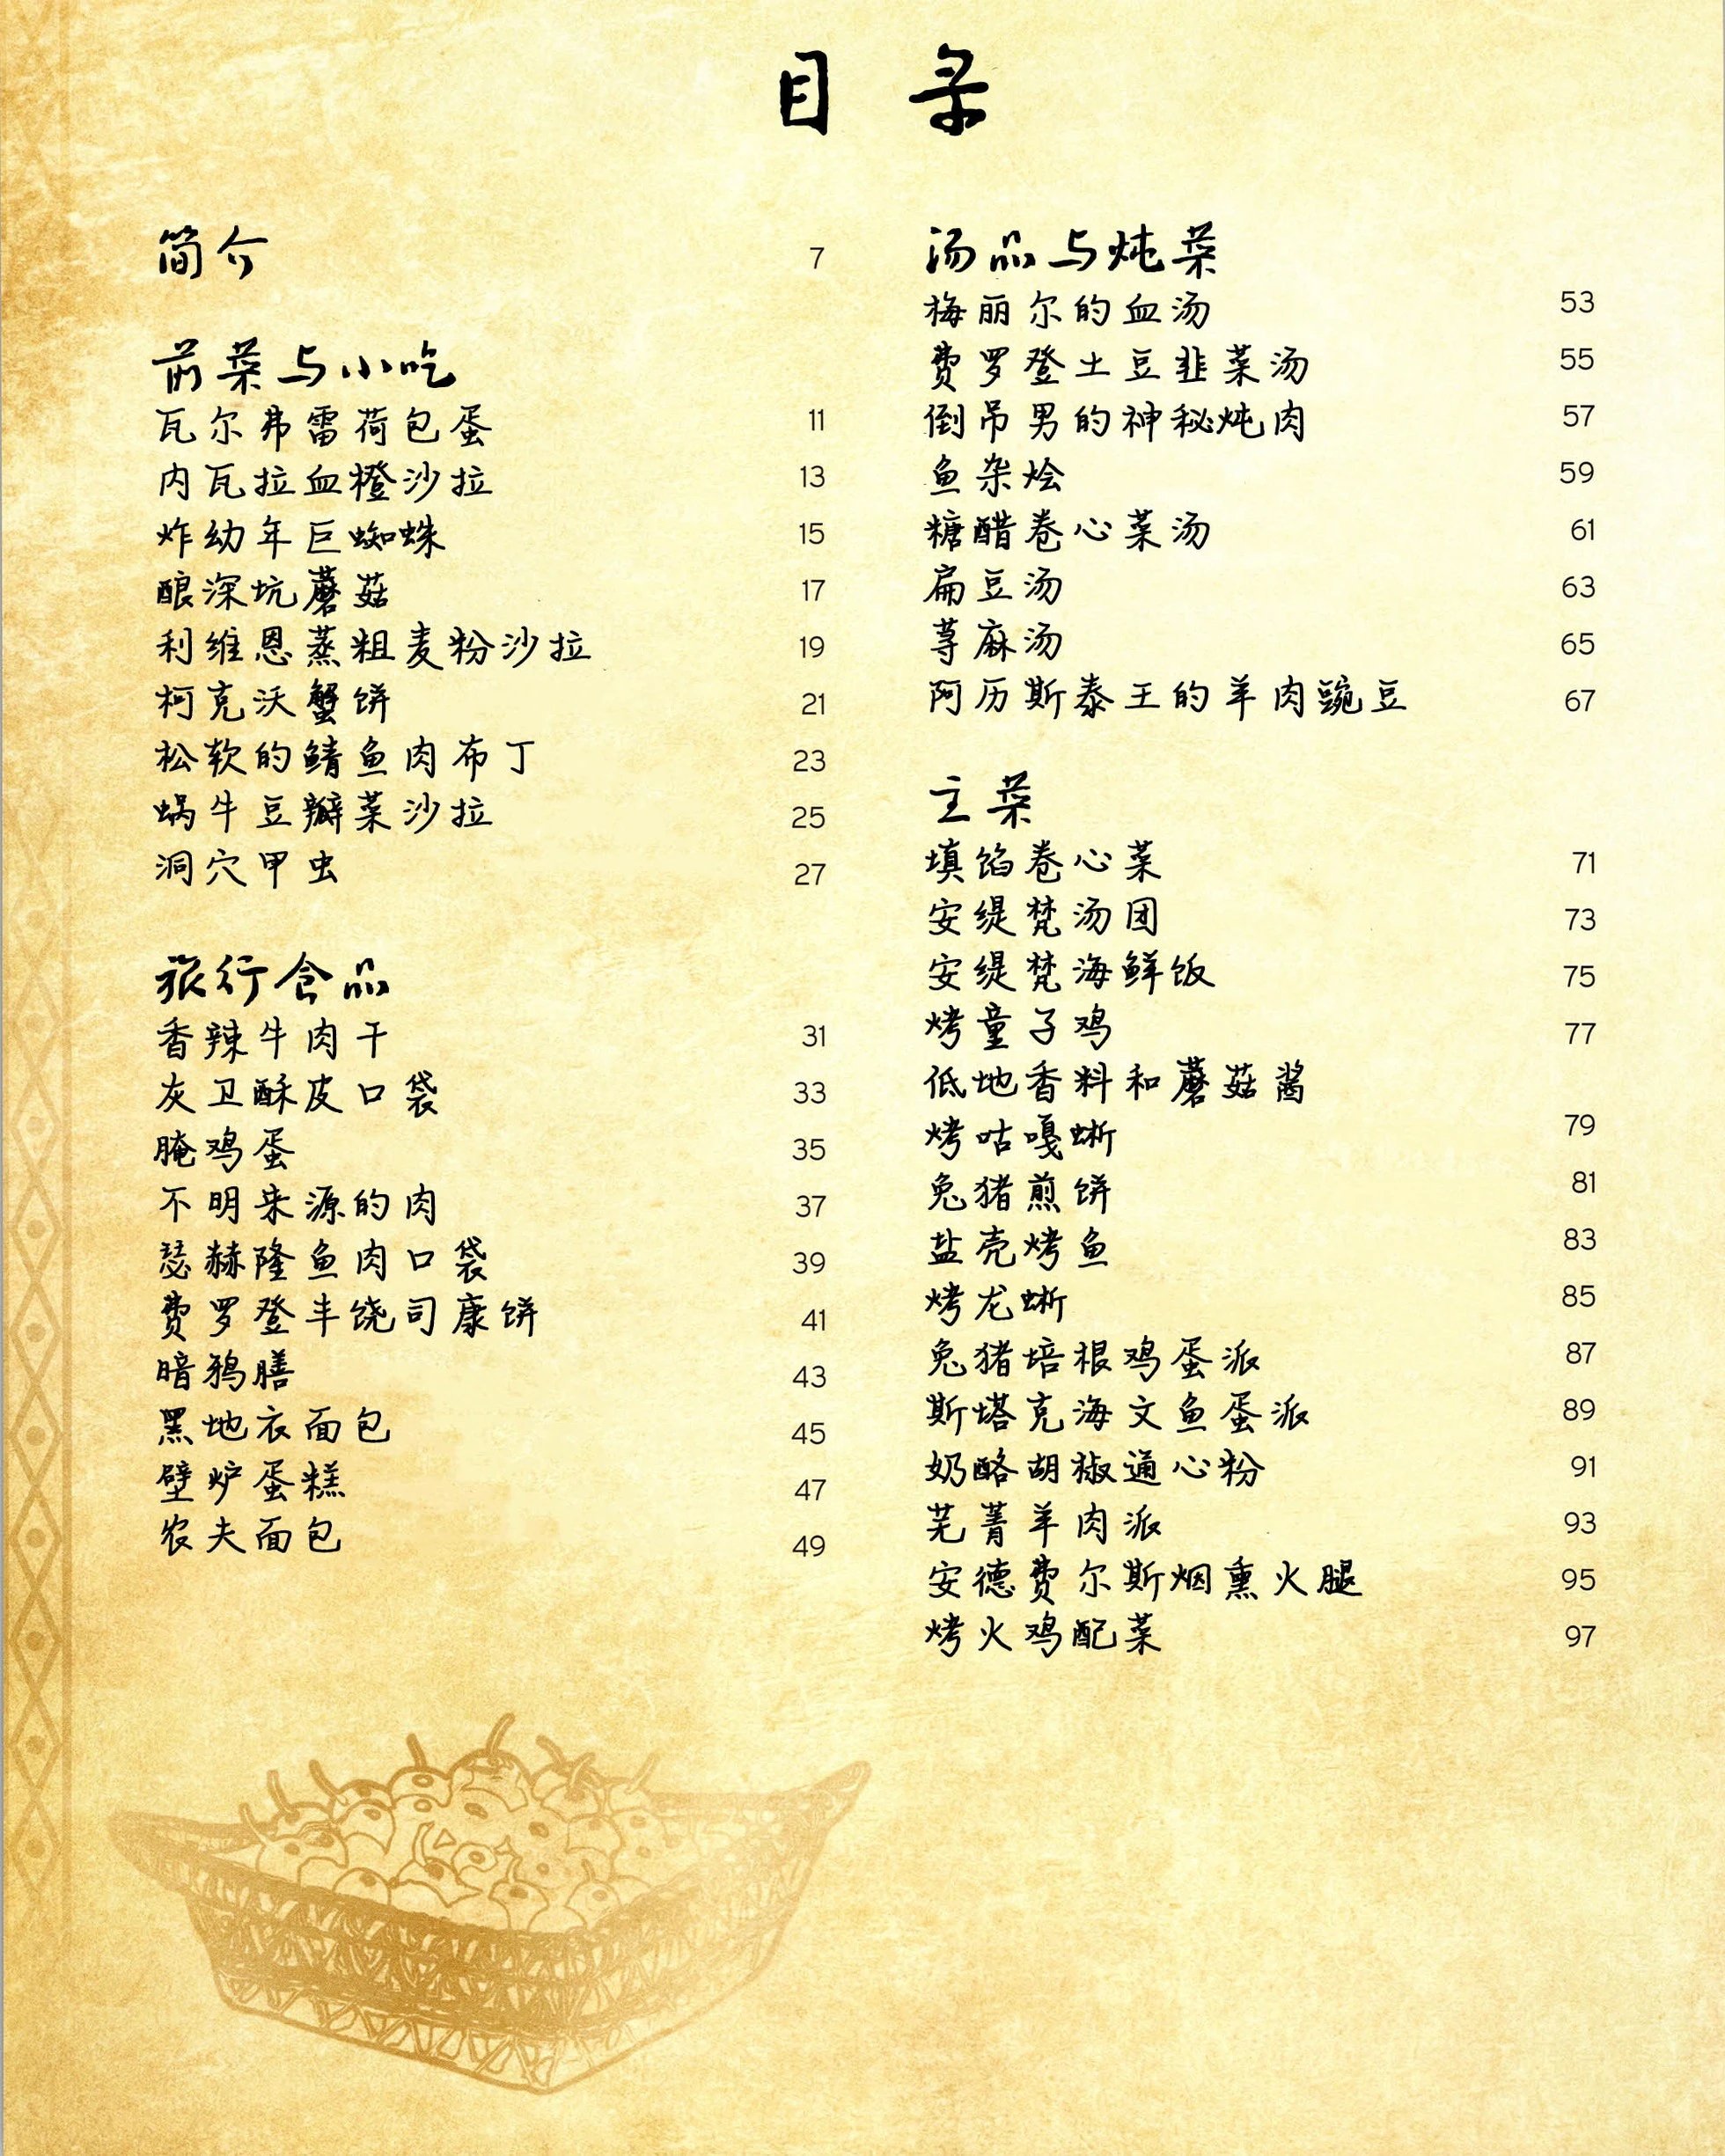 目录
简介 7
前菜与小吃
瓦尔弗雷荷包蛋 11
内瓦拉血橙沙拉 13
炸幼年巨蜘蛛 15
酿深坑蘑菇 17
利维恩蒸粗麦粉沙拉 19
柯克沃蟹饼 21
松软的鲭鱼肉布丁 23
蜗牛豆瓣菜沙拉 25
洞穴甲虫 27
旅行食品
香辣牛肉干 31
灰卫酥皮口袋 33
腌鸡蛋 35
不明来源的肉 37
瑟赫隆鱼肉口袋 39
费罗登丰饶司康饼 41
暗鸦膳 43
黑地衣面包 45
壁炉蛋糕 47
农夫面包 49
汤品与炖菜
梅丽尔的血汤 53
费罗登土豆韭菜汤 55
倒吊男的神秘炖肉 57
鱼杂烩 59
糖醋卷心菜汤 61
扁豆汤 63
荨麻汤 65
阿历斯泰王的羊肉豌豆 67
主菜
填馅卷心菜 71
安缇梵汤团 73
安缇梵海鲜饭 75
烤童子鸡 77
低地香料和蘑菇酱
烤咕嘎蜥 79
兔猪煎饼 81
盐壳烤鱼 83
烤龙蜥 85
兔猪培根鸡蛋派 87
斯塔克海文鱼蛋派 89
奶酪胡椒通心粉 91
芜菁羊肉派 93
安德费尔斯烟熏火腿 95
烤火鸡配菜 97